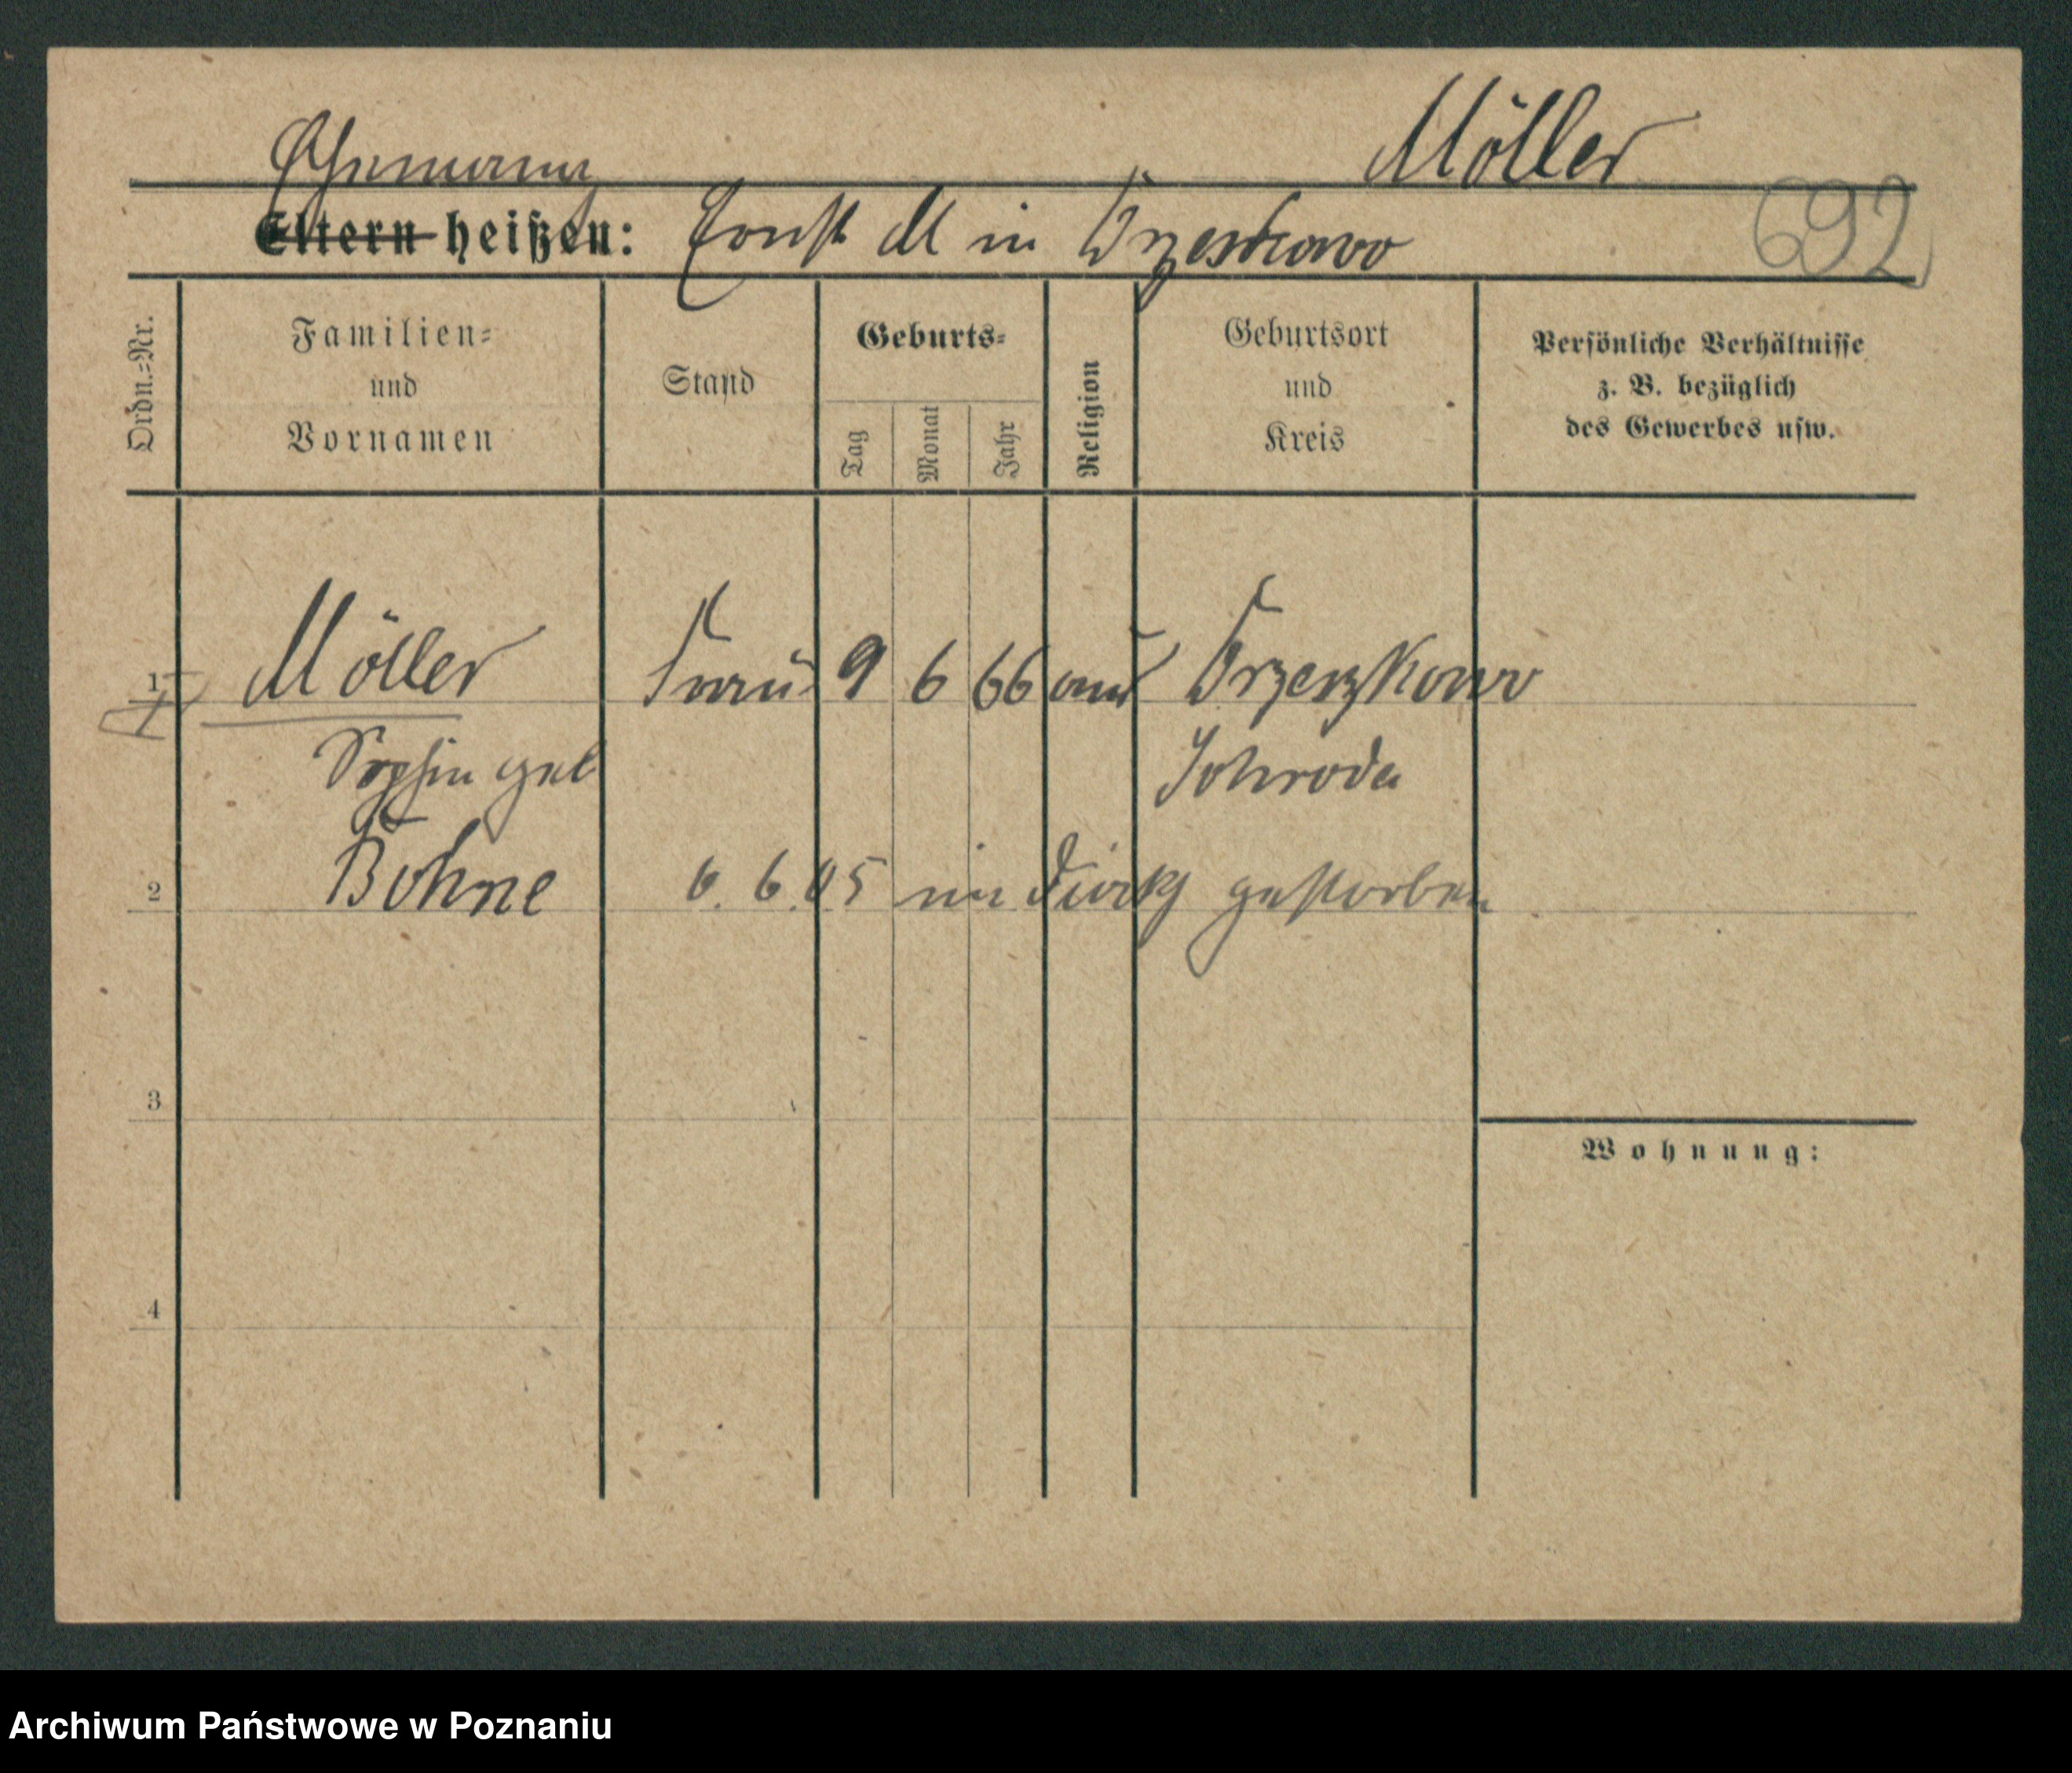 Ehemann Möller
Eltern heißen: Ernst M in Brzeskowo
692
Ordn.-Nr.
Familien-
und
Vornamen
Stand
Geburts-
Tag
Monat
Jahr
Religion
Geburtsort
und
Kreis
Persönliche Verhältnisse
z. B. bezüglich
des Gewerbes usw.
1 Möller Frau 9 6 66 Brzezkowo
Sophie geb Schroda
2 Bohne 6. 6. 05 im gestorben
3
Wohnung:
4
Archiwum Państwowe w Poznaniu